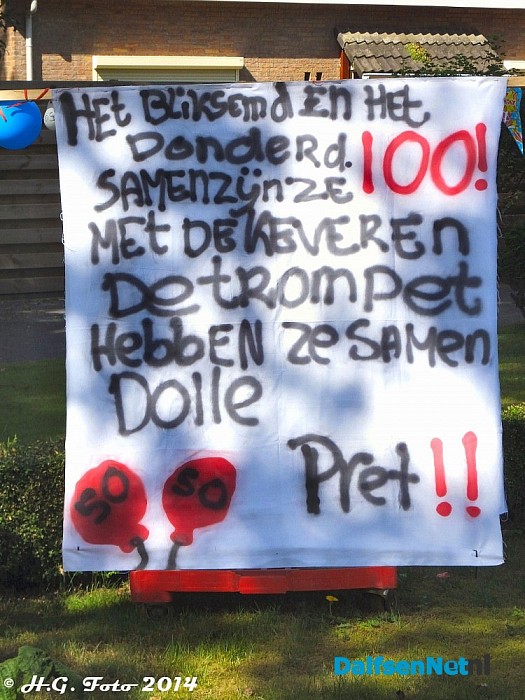 Het Bliksemd En Het
Donderd. 100!
SAMENZijn ZE
MET DE KEVER EN
De trompet
HebbEN ze SAMen
Dolle
Pret!!
50 50
© H.G. Foto 2014
DalfsenNet.nl